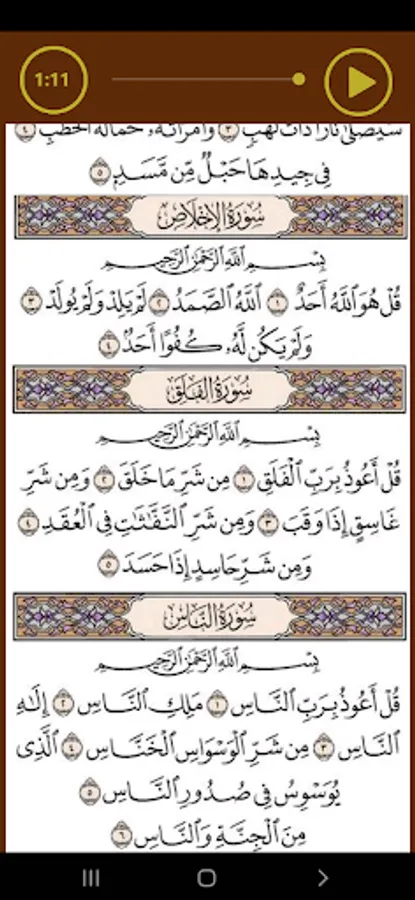 1:11
سَيَصْلَىٰ نَارًا ذَاتَ لَهَبٍ ٣ وَامْرَأَتُهُ حَمَّالَةَ الْحَطَبِ ٤
فِي جِيدِهَا حَبْلٌ مِّن مَّسَدٍ ٥
سُورَةُ الإِخْلَاصِ
بِسْمِ اللَّهِ الرَّحْمَٰنِ الرَّحِيمِ
قُلْ هُوَ اللَّهُ أَحَدٌ ١ اللَّهُ الصَّمَدُ ٢ لَمْ يَلِدْ وَلَمْ يُولَدْ ٣
وَلَمْ يَكُن لَّهُ كُفُوًا أَحَدٌ ٤
سُورَةُ الفَلَقِ
بِسْمِ اللَّهِ الرَّحْمَٰنِ الرَّحِيمِ
قُلْ أَعُوذُ بِرَبِّ الْفَلَقِ ١ مِن شَرِّ مَا خَلَقَ ٢ وَمِن شَرِّ
غَاسِقٍ إِذَا وَقَبَ ٣ وَمِن شَرِّ النَّفَّاثَاتِ فِي الْعُقَدِ ٤
وَمِن شَرِّ حَاسِدٍ إِذَا حَسَدَ ٥
سُورَةُ النَّاسِ
بِسْمِ اللَّهِ الرَّحْمَٰنِ الرَّحِيمِ
قُلْ أَعُوذُ بِرَبِّ النَّاسِ ١ مَلِكِ النَّاسِ ٢ إِلَٰهِ
النَّاسِ ٣ مِن شَرِّ الْوَسْوَاسِ الْخَنَّاسِ ٤ الَّذِي
يُوَسْوِسُ فِي صُدُورِ النَّاسِ ٥
مِنَ الْجِنَّةِ وَالنَّاسِ ٦